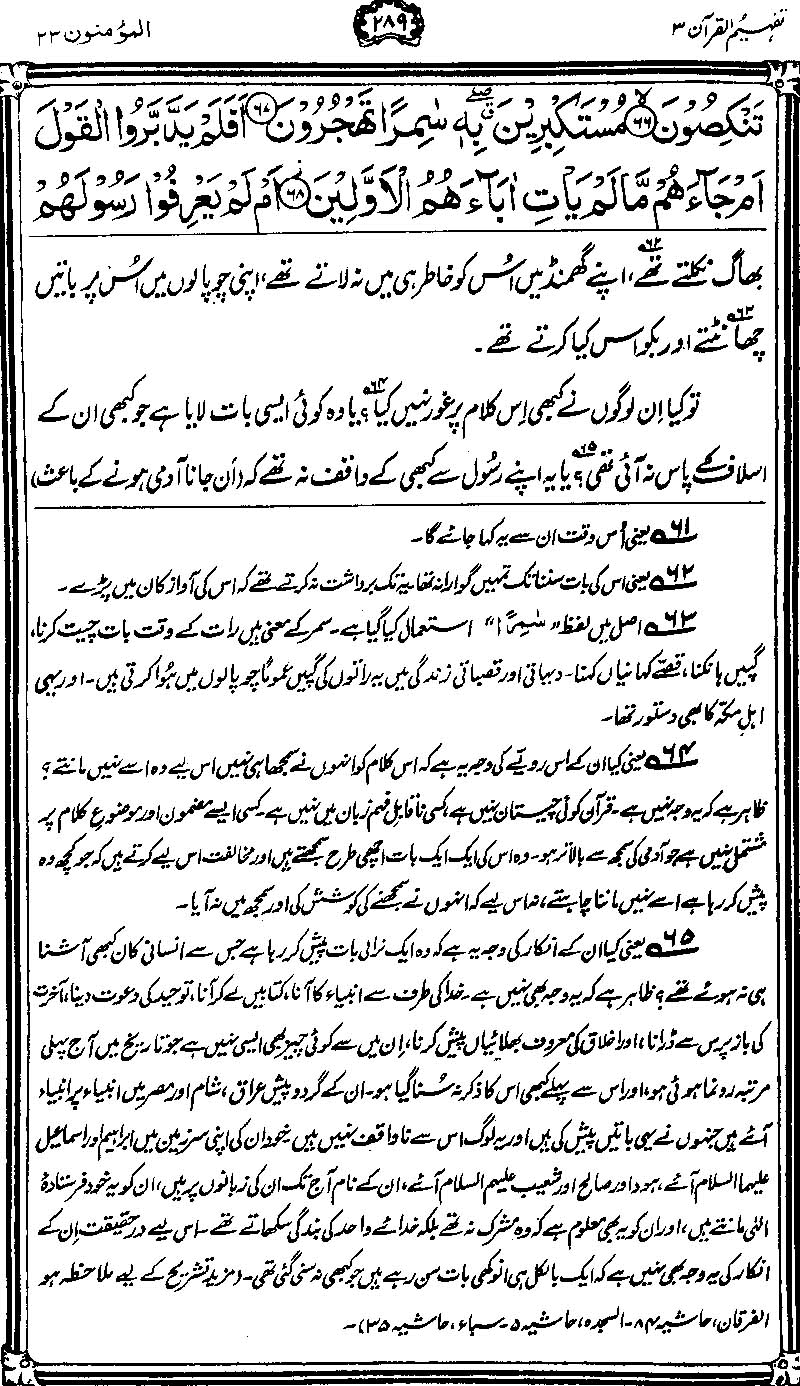 تفہیم القرآن ۳
۲۸۹
المؤمنون ۲۳
تَنْكِصُوْنَ ﴿۶۶﴾ مُسْتَكْبِرِيْنَ بِهٖ سٰمِرًا تَهْجُرُوْنَ ﴿۶۷﴾ اَفَلَمْ يَدَّبَّرُوا الْقَوْلَ
اَمْ جَآءَهُمْ مَّا لَمْ يَاْتِ اٰبَآءَهُمُ الْاَوَّلِيْنَ ﴿۶۸﴾ اَمْ لَمْ يَعْرِفُوْا رَسُوْلَهُمْ
بھاگ نکلتے تھے۶۲، اپنے گھمنڈ میں اُس کو خاطر ہی میں نہ لاتے تھے، اپنی چوپالوں میں اُس پر باتیں
چھانٹتے۶۳ اور بکواس کیا کرتے تھے۔
تو کیا اِن لوگوں نے کبھی اِس کلام پر غور نہیں کیا۶۴؟ یا وہ کوئی ایسی بات لایا ہے جو کبھی ان کے
اسلاف کے پاس نہ آئی تھی۶۵؟ یا یہ اپنے رسُول سے کبھی کے واقف نہ تھے کہ (اَن جانا آدمی ہونے کے باعث)
۶۱ یعنی اُس وقت ان سے یہ کہا جائے گا۔
۶۲ یعنی اس کی بات سننا تک تمہیں گوارا نہ تھا۔ یہ تک برداشت نہ کرتے تھے کہ اس کی آواز کان میں پڑے۔
۶۳ اصل میں لفظ "سٰمِرًا" استعمال کیا گیا ہے۔ سمر کے معنی ہیں رات کے وقت بات چیت کرنا،
گپیں ہانکنا، قصے کہانیاں کہنا۔ دیہاتی اور قصباتی زندگی میں یہ راتوں کی گپیں عموماً چوپالوں میں ہُوا کرتی ہیں۔ اور یہی
اہلِ مکہ کا بھی دستور تھا۔
۶۴ یعنی کیا ان کے اس رویّے کی وجہ یہ ہے کہ اس کلام کو انہوں نے سمجھا ہی نہیں اس لیے وہ اسے نہیں مانتے؟
ظاہر ہے کہ یہ وجہ نہیں ہے۔ قرآن کوئی چیستان نہیں ہے، کسی ناقابلِ فہم زبان میں نہیں ہے۔ کسی ایسے مضمون اور موضوعِ کلام پر
مشتمل نہیں ہے جو آدمی کی سمجھ سے بالاتر ہو۔ وہ اس کی ایک ایک بات اچھی طرح سمجھتے ہیں اور مخالفت اس لیے کرتے ہیں کہ جو کچھ وہ
پیش کر رہا ہے اسے نہیں ماننا چاہتے، نہ اس لیے کہ انہوں نے سمجھنے کی کوشش کی اور سمجھ میں نہ آیا۔
۶۵ یعنی کیا ان کے انکار کی وجہ یہ ہے کہ وہ ایک نرالی بات پیش کر رہا ہے جس سے انسانی کان کبھی آشنا
ہی نہ ہوئے تھے؟ ظاہر ہے کہ یہ وجہ بھی نہیں ہے۔ خدا کی طرف سے انبیاء کا آنا، کتابیں لے کر آنا، توحید کی دعوت دینا، آخرت
کی باز پرس سے ڈرانا، اور اخلاق کی معروف بھلائیاں پیش کرنا، اِن میں سے کوئی چیز بھی ایسی نہیں ہے جو تاریخ میں آج پہلی
مرتبہ رونما ہوئی ہو، اور اس سے پہلے کبھی اس کا ذکر نہ سُنا گیا ہو۔ ان کے گرد و پیش عراق، شام اور مصر میں انبیاء پر انبیاء
آئے ہیں جنہوں نے یہی باتیں پیش کی ہیں اور یہ لوگ اس سے ناواقف نہیں ہیں۔ خود ان کی اپنی سرزمین میں ابراہیم اور اسماعیل
علیہما السلام آئے، ہود اور صالح اور شعیب علیہم السلام آئے، ان کے نام آج تک ان کی زبانوں پر ہیں، ان کو یہ خود فرستادۂ
الٰہی مانتے ہیں، اور ان کو یہ بھی معلوم ہے کہ وہ مشرک نہ تھے بلکہ خدائے واحد کی بندگی سکھاتے تھے۔ اس لیے درحقیقت اِن کے
انکار کی یہ وجہ بھی نہیں ہے کہ ایک بالکل ہی انوکھی بات سن رہے ہیں جو کبھی نہ سنی گئی تھی۔ (مزید تشریح کے لیے ملاحظہ ہو
الفرقان، حاشیہ ۸۴۔ السجدہ، حاشیہ ۵۔ سباء، حاشیہ ۳۵)۔